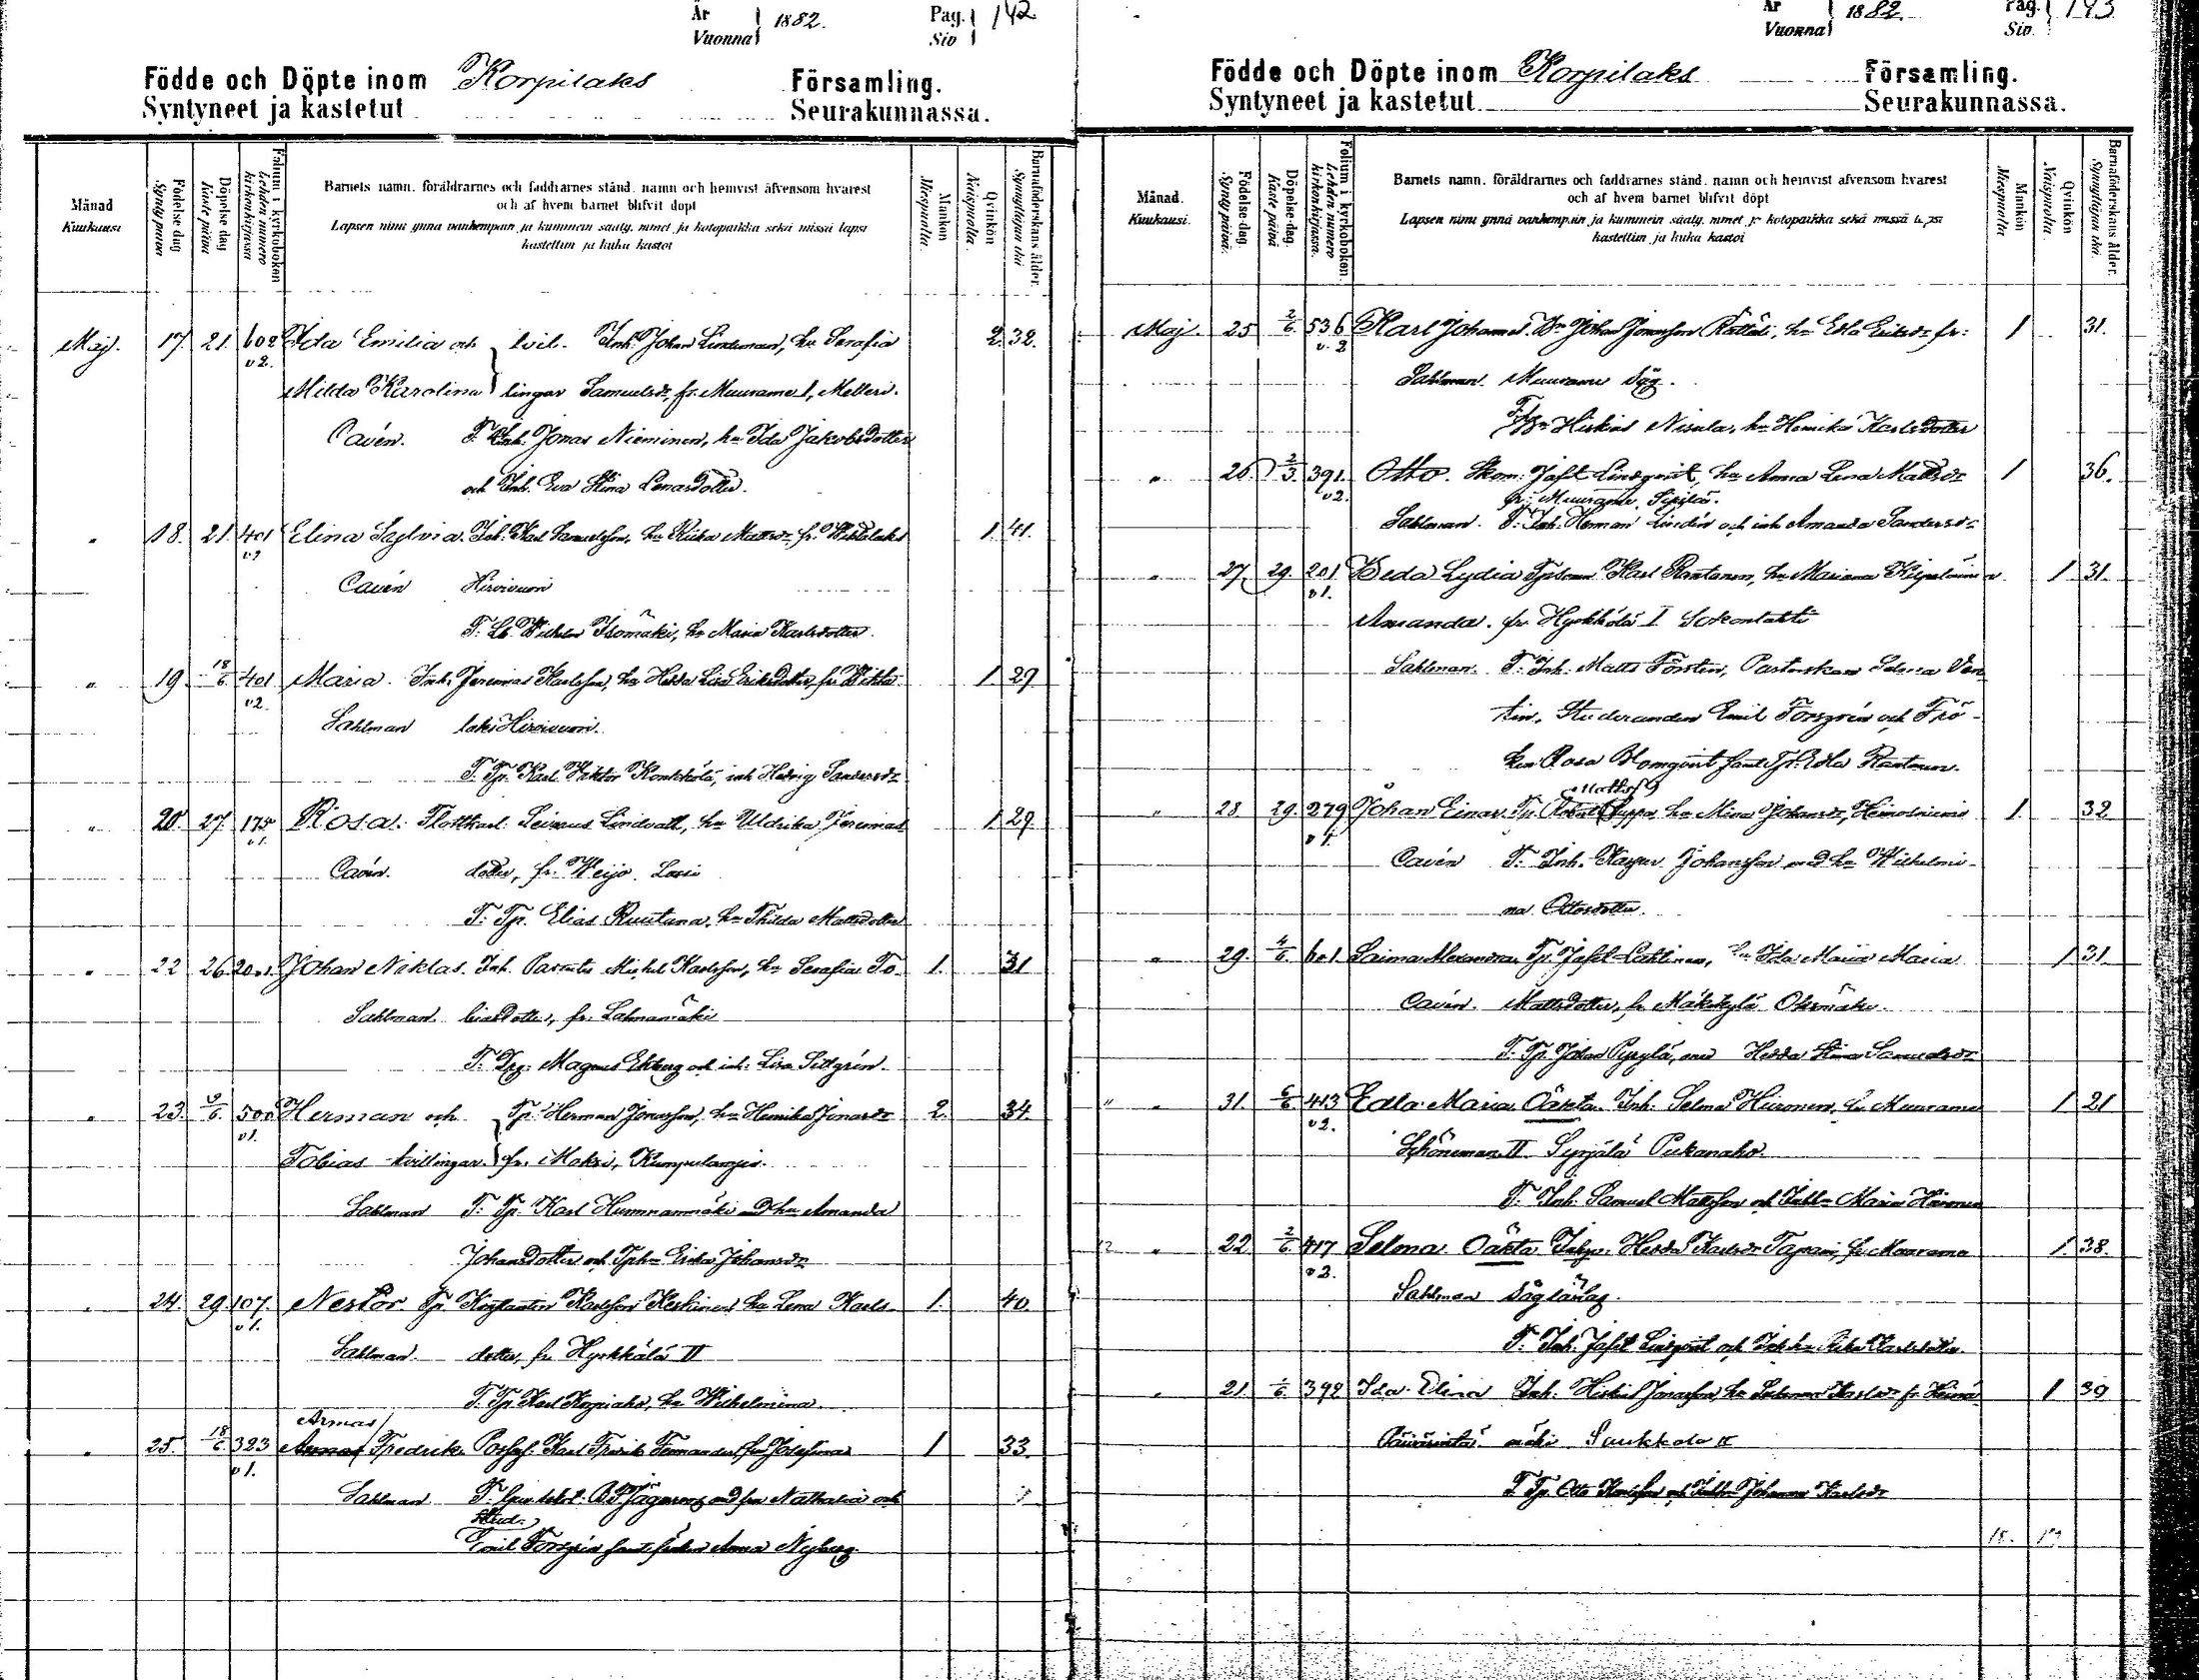 År Vuonna 1882. Pag. Siv 142
Födde och Döpte inom Korpilaks Församling.
Syntyneet ja kastetut Seurakunnassa.
Månad Kuukausi
Födelse dag Synty päivä
Döpelse dag Kaste päivä
Folium i kyrkoboken Lehden numero kirkonkirjassa
Barnets namn. föräldrarnes och faddrarnes stånd. namn och hemvist äfvensom hvarest
och af hvem barnet blifvit döpt
Lapsen nimi ynnä vanhempain ja kummein sääty. nimet ja kotopaikka sekä missä lapsi
kastettiin ja kuka kastoi
Mankön Miespuolia.
Qvinkön Naispuolia.
Barnaföderskans ålder. Synnyttäjän ikä
Maj. 17. 21. 602 v2. Ida Emilia och tvil- Inh. Johan Lindeman, hu Serafia 2. 32.
Milda Karolina lingar Samuelsdr, fr. Muurame I, Melleri.
Cavén. F. Inh. Jonas Nieminen, hu Ida Jakobsdotter
och Inh. Eva Stina Lenasdotter.
" 18. 21. 401 v2 Elina Saylvia. Inh. Karl Samuelsson, hu Riika Mattsdr fr. Wihtalaks 1. 41.
Cavén Hirvivuori
F. Lb. Wilhelm Isomäki, hu Maria Karlsdotter.
" 19 18/6. 401 v2. Maria. Inh. Jeremias Karlsson, hu Hedda Lisa Eriksdotter, fr Wihta- 1. 29
Sahlman laks Hirvivuori.
F. Tp. Karl Viktor Konkkola, inh Hedvig Sandersdr
" 20. 27. 175 v1. Rosa. Flottkarl. Leivaus Lindvall, hu Uldrika Jeremias 1. 29.
Cavén. dotter, fr. Weijo.
F. Tp. Elias Ruutana, hu Thilda Mattsdotter
" 22 26. 20 v1. Johan Niklas. Inh. Michel Karlsson, hu Serafia To- 1. 31
Sahlman biasdotter, fr. Sahnamäki
F. Drg. Magnus Ekberg och inh. Lisa Sittgrén.
" 23. 9/6. 500 v1. Herman och Tp. Herman Jonasson, hu Henrika Jonasdr 2. 34.
Tobias tvillingar. fr. Moksi, Kumpulansis.
Sahlman F. Tp. Karl Hummanmäki och hu Amanda
Johansdotter och Tphu Erika Johansdr
" 24. 29. 107. v1. Nestor Tp. Konstantin Karlsson Keskinen hu Lena Karls- 1. 40
Sahlman. dotter, fr Hyrkkälä II
F. Tp. Karl Korpiaho, hu Wilhelmina.
" 25. 18/6. 323 v1. Armas Fredrik. Karl Fredrik Fernander, fru Josefina 1 33.
Sahlman fru Nathalia och
Stud.
Emil Forsgrén samt fröken Anna Nyberg.
År Vuonna 1882. Pag. Siv. 143
Födde och Döpte inom Korpilaks Församling.
Syntyneet ja kastetut Seurakunnassa.
Månad. Kuukausi.
Födelse-dag. Synty päivä.
Döpelse-dag. Kaste päivä
Folium i kyrkoboken. Lehden numero kirkonkirjassa.
Barnets namn. föräldrarnes och faddrarnes stånd. namn och hemvist äfvensom hvarest
och af hvem barnet blifvit döpt
Lapsen nimi ynnä vanhempain ja kummein sääty. nimet ja kotopaikka sekä missä lapsi
kastettiin ja kuka kastoi
Mankön Miespuolia
Qvinkön Naispuolia.
Barnaföderskans ålder. Synnyttäjän ikä.
Maj. 25 2/6. 536 v. 2 Karl Johannes. Johan Jonasson Kättäli, hu Eda Eriksdr fr. 1 31.
Sahlman. Muurame Såg.
F. Hiskias Nisula, hu Henrika Karlsdotter
" 26. 2/3. 391. v2. Otto. Skom. Jafet Lindqvist, hu Anna Lena Mattsdr 1 36.
fr. Muurame, Sipilä.
Sahlman. F. Inh. Herman Lindén och inh Amanda Sandersdr
" 27. 29. 201 v1. Beda Lydia Karl Rantanen, hu Mariana Kilpeläinen 1 31.
Amanda. fr Hyrkkölä I Sokontahti
Sahlman. F. Inh. Matts Forstén, Pastorskan Selma Ven
tin, Studeranden Emil Forsgrén och Frö-
ken Rosa Blomqvist samt Tp. Eda Rantanen.
Mattss
" 28 29. 279 v1. Johan Einar. Tp. Robert Huppa hu Mina Johansdr, Heinosniemi 1. 32
Cavén F. Inh. Kasper Johansson med hu Wilhelmi-
na Ottosdotter.
" 29. 4/6. 601. Saima Alexandra. Tp. Jafet Lahtinen, hu Ida Maria Maria 1 31.
Cavén. Mattsdotter, fr Mäkikylä Oksmäki.
F. Tp. Jonas Pyrylä, med Hedda Stina Samuelsdr
" 31. 6/6 413 v2. Edla Maria Oäkta. Inh. Selma Hiironen, fr Muurame 1 21
Schöneman II Syrjälä Pukanaho.
F. Inh. Samuel Mattsson och Inhhu Maria Hiironen
" 22 2/6. 417 v2. Selma Oäkta Inhp. Hedda Karlsdr Tapani, fr Muurame 1. 38.
Sahlman Såglänlag.
F. Inh. Jafet Lindqvist och Inhhu Rika Karlsdotter.
" 21. 1/6. 392 Ida Elina Inh. Hiskias Jonasson, hu Karlsdr fr Heinä- 1 39
Päivärinta mäki Saukkola II
F. Tp. Otto Karlsson och Inhhu Johanna Karlsdr
18. 17